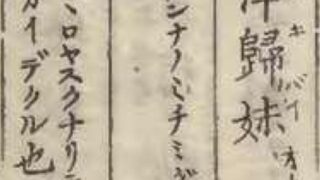 歸妹 キバイ オ
シナノミチミ
ミロヤスクナリテ
カイデクル也